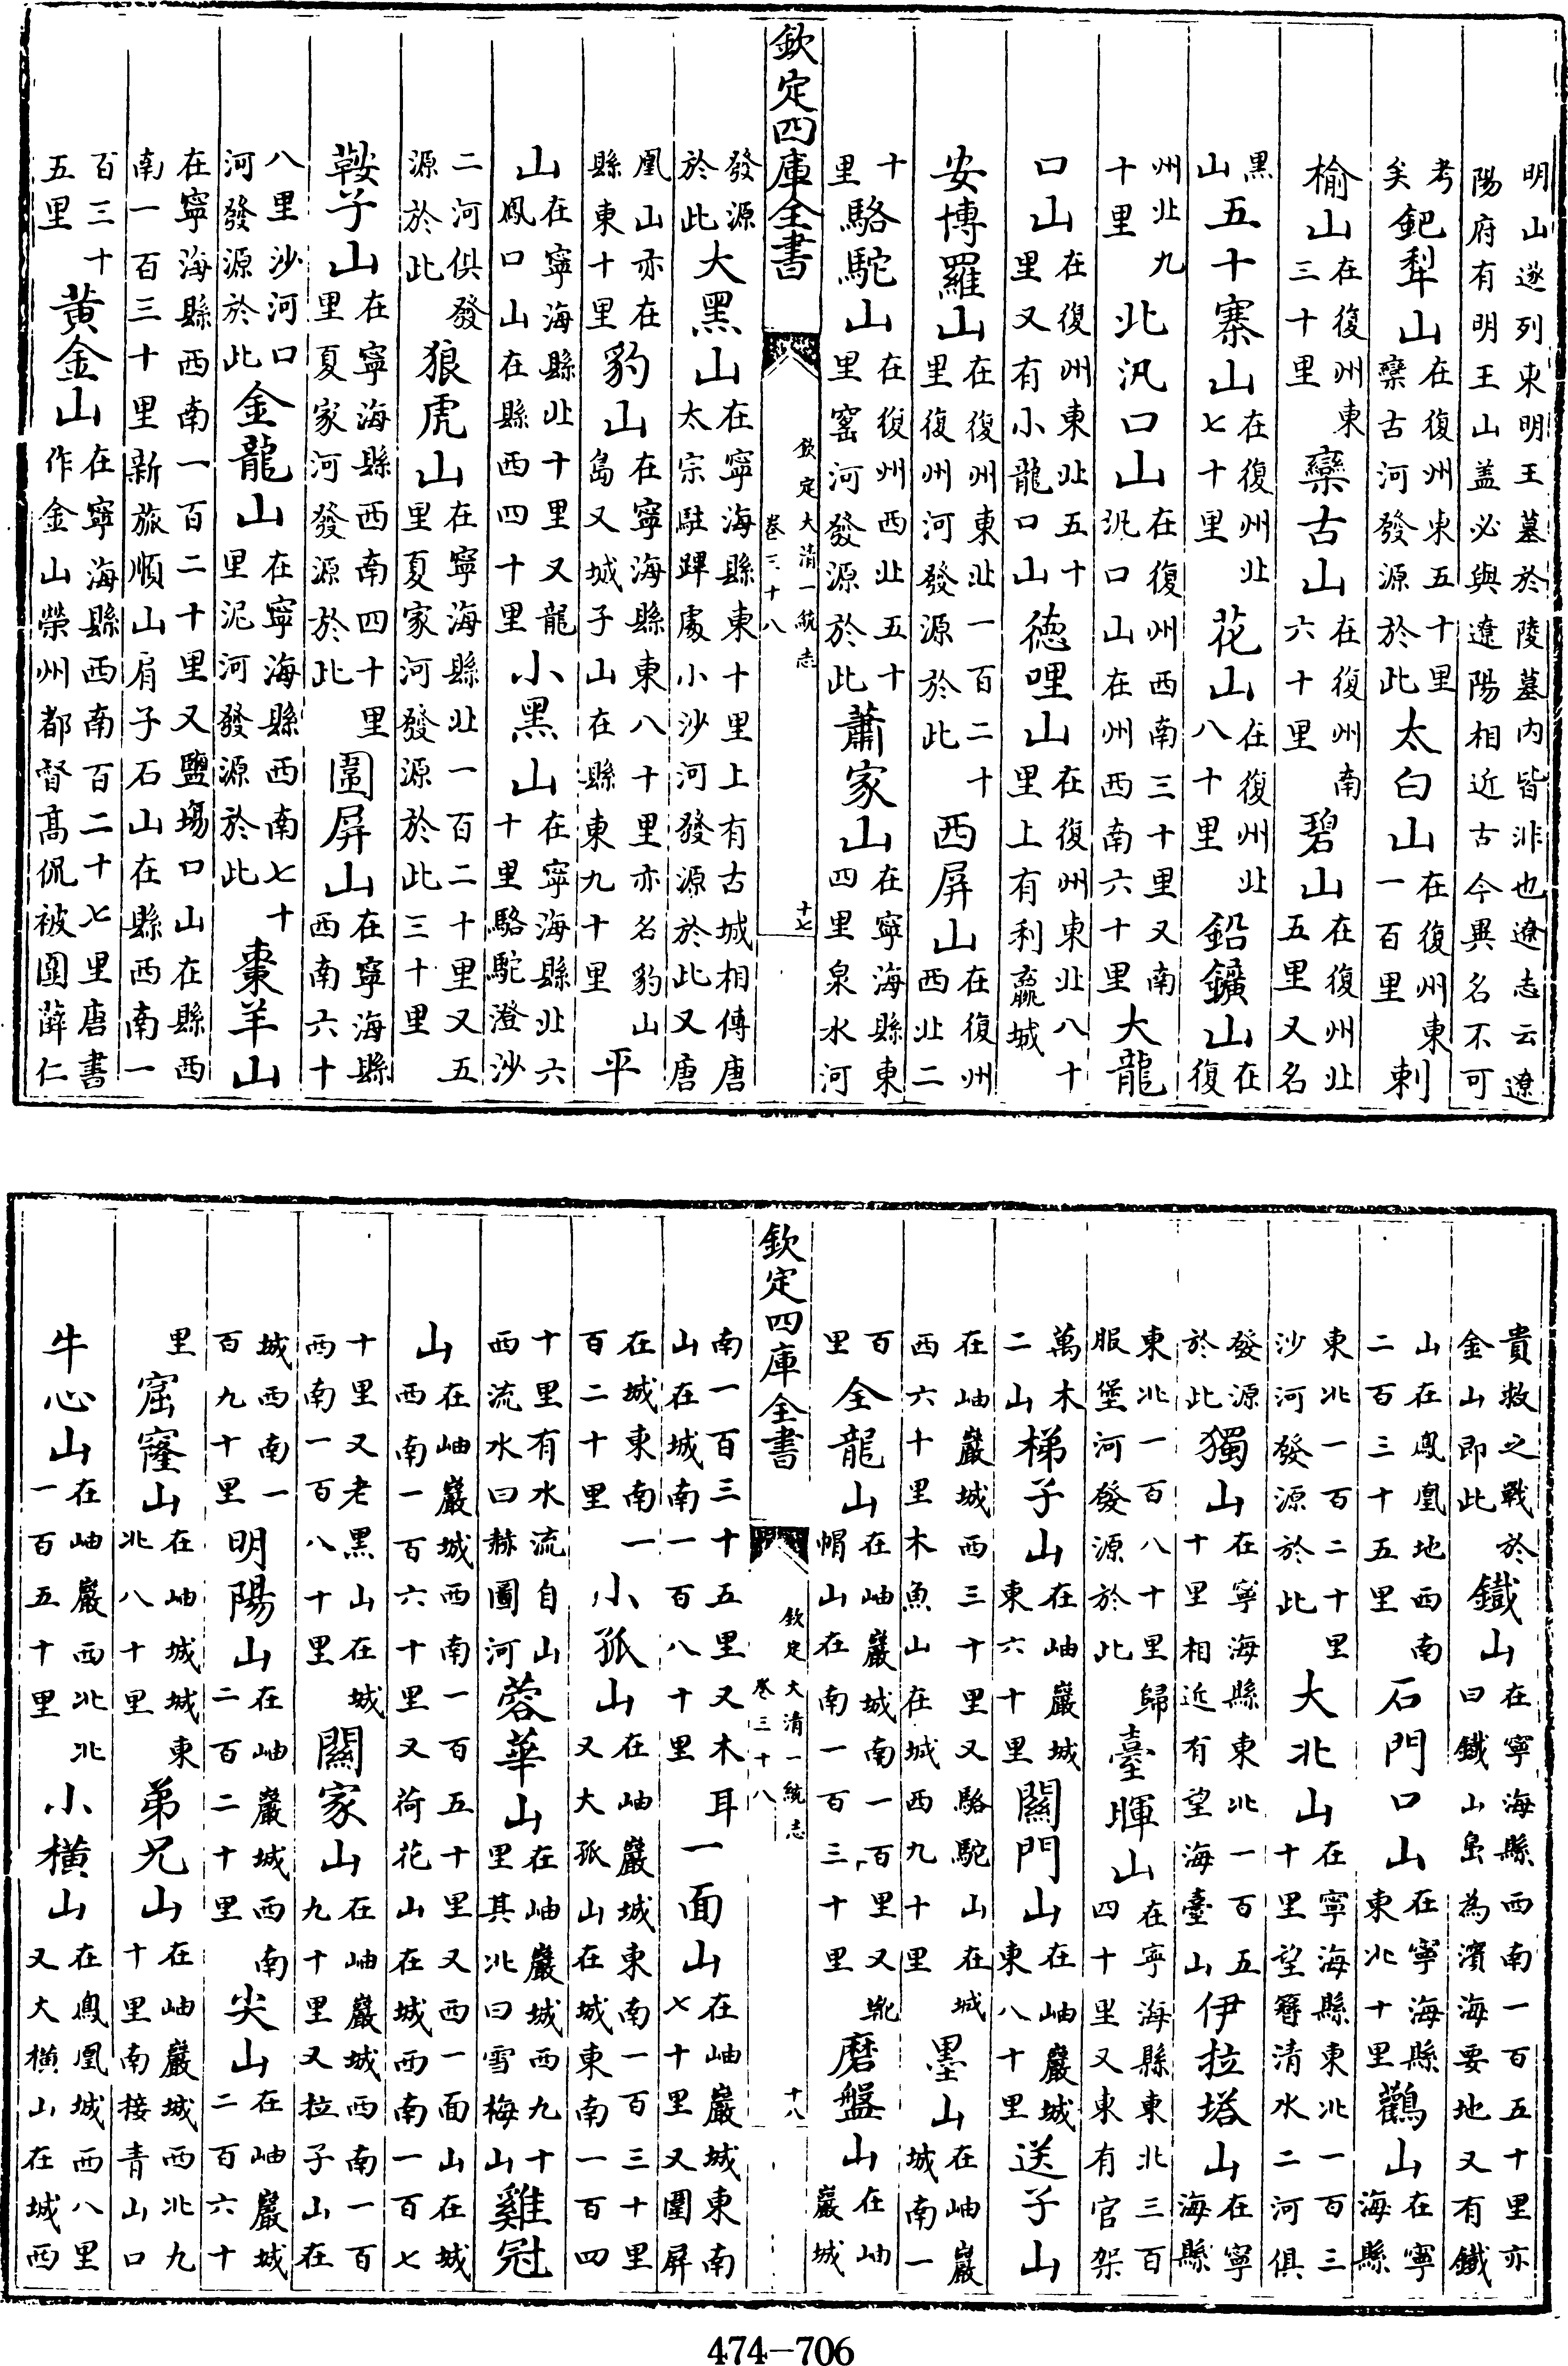 明山遂列東明王墓於陵墓内皆非也遼志云遼陽府有明王山盖必與遼陽相近古今異名不可
考矣鈀犁山在復州東五十里欒古河發源於此太白山在復州東一百里剌
榆山在復州東三十里欒古山在復州南六十里碧山在復州北五里又名
黑山五十寨山在復州北七十里花山在復州北八十里鉛鑛山在復
州北九十里北汎口山在復州西南三十里又南汎口山在州西南六十里大龍
口山在復州東北五十里又有小龍口山德哩山在復州東北八十里上有利贏城
安博羅山在復州東北一百二十里復州河發源於此西屏山在復州西北二
十里駱駝山在復州西北五十里窰河發源於此蕭家山在寧海縣東四里泉水河
欽定四庫全書 欽定大清一統志 卷三十八 十七
發源於此大黑山在寧海縣東十里上有古城相傳唐太宗駐蹕處小沙河發源於此又唐
凰山亦在縣東十里豹山在寧海縣東八十里亦名豹山島又城子山在縣東九十里平
山在寧海縣北十里又龍鳳口山在縣西四十里小黑山在寧海縣北六十里駱駝澄沙
二河俱發源於此狼虎山在寧海縣北一百二十里又五里夏家河發源於此三十里
鞍子山在寧海縣西南四十里夏家河發源於此圍屏山在寧海縣西南六十
八里沙河口河發源於此金龍山在寧海縣西南七十里泥河發源於此棗羊山
在寧海縣西南一百二十里又鹽塲口山在縣西南一百三十里新旅順山肩子石山在縣西南一
百三十五里黄金山在寧海縣西南百二十七里唐書作金山榮州都督髙侃被圍薛仁
貴救之戰於金山即此鐵山在寧海縣西南一百五十里亦曰鐵山島為濱海要地又有鐵
山在鳳凰地西南二百三十五里石門口山在寧海縣東北十里鸛山在寧海縣
東北一百二十里沙河發源於此大北山在寧海縣東北一百三十里望簪清水二河俱
發源於此獨山在寧海縣東北一百五十里相近有望海臺山伊拉塔山在寧海縣
東北一百八十里歸服堡河發源於此臺暉山在寧海縣東北三百四十里又東有官架
萬木二山梯子山在岫巖城東六十里關門山在岫巖城東八十里送子山
在岫巖城西三十里又駱駝山在城西六十里木魚山在城西九十里墨山在岫巖城南一
百里全龍山在岫巖城南一百里又靴帽山在南一百三十里磨盤山在岫巖城
欽定四庫全書 欽定大清一統志 卷三十八 十八
南一百三十五里又木耳山在城南一百八十里一面山在岫巖城東南七十里又圍屏
在城東南一百二十里小孤山在岫巖城東南一百三十里又大孤山在城東南一百四
十里有水流自山西流水曰赫圖河蓉華山在岫巖城西九十里其北曰雪梅山雞冠
山在岫巖城西南一百五十里又西一面山在城西南一百六十里又荷花山在城西南一百七
十里又老黑山在城西南一百八十里關家山在岫巖城西南一百九十里又拉子山在
城西南一百九十里明陽山在岫巖城西南二百二十里尖山在岫巖城二百六十
里窟窿山在岫城城東北八十里弟兄山在岫巖城西北九十里南接青山口
牛心山在岫巖西北北一百五十里小横山在鳳凰城西八里又大横山在城西
474-706